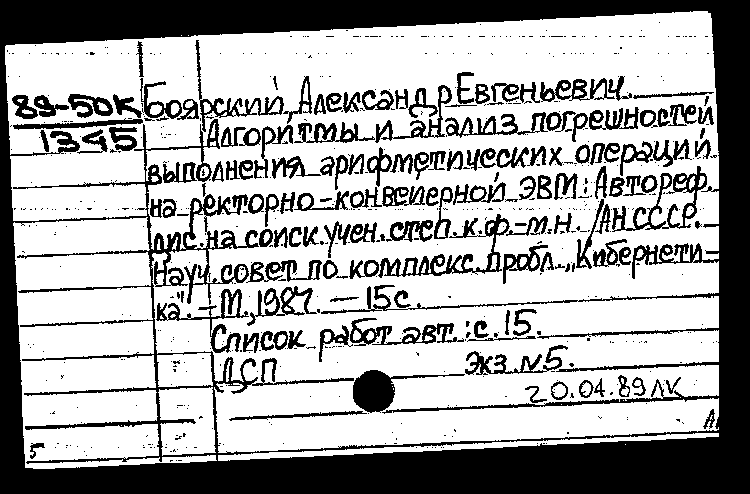 89-50К Боярский, Александр Евгеньевич.
1345 Алгоритмы и анализ погрешностей
выполнения арифметических операций
на векторно-конвейерной ЭВМ: Автореф.
дис. на соиск. учен. степ. к.ф.-м.н. /АН СССР.
Науч. совет по комплекс. пробл. „Кибернети-
ка". - М., 1987. - 15 с.
Список работ авт.: с. 15.
ДСП Экз. N5.
20.04.89 ЛК
5